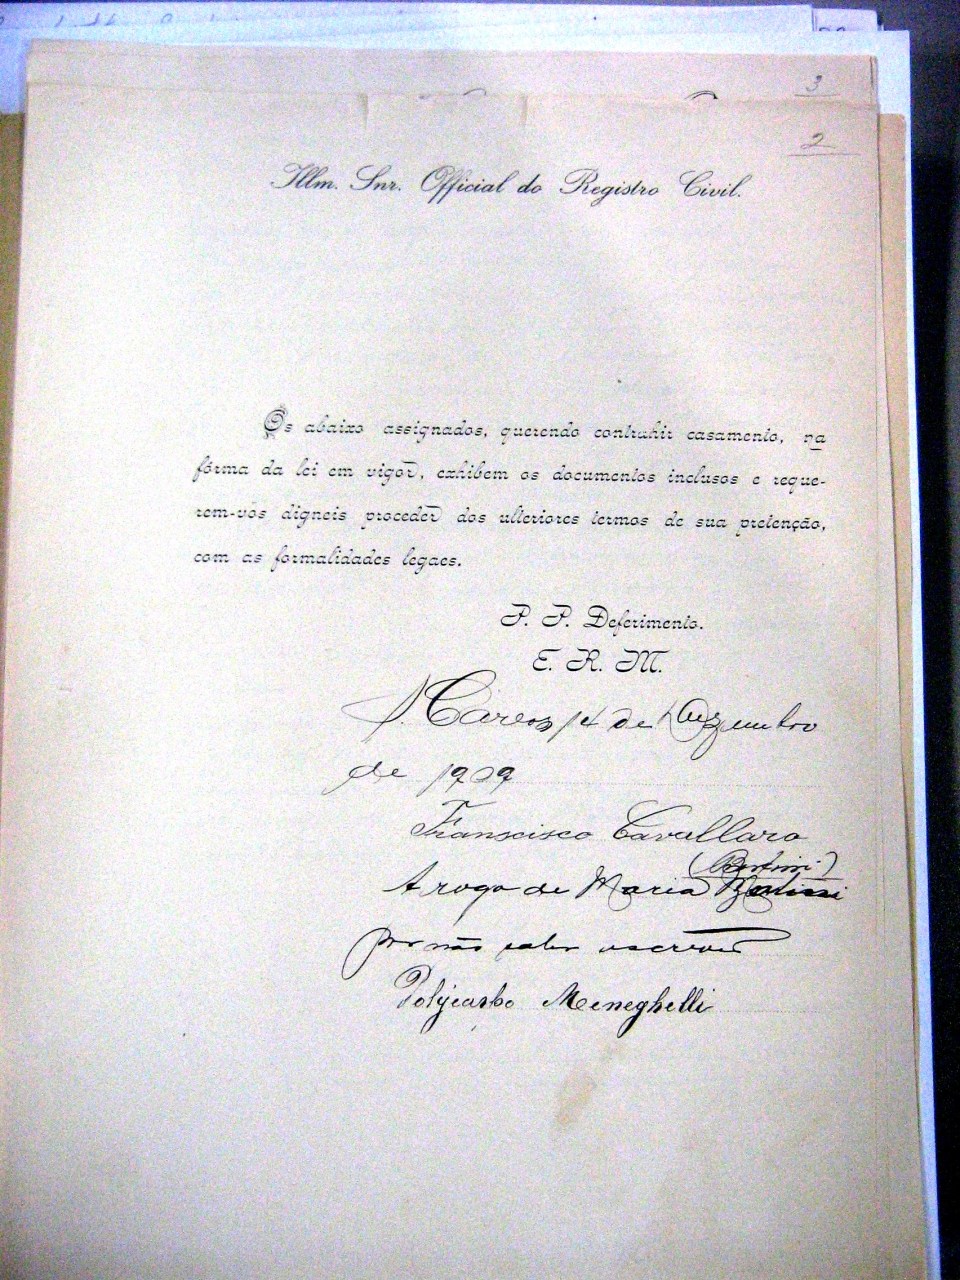 3
2
Illm. Snr. Official do Registro Civil.
Os abaixo assignados, querendo contrahir casamento, na
fórma da lei em vigor, exhibem os documentos inclusos e reque-
rem-vos digneis proceder dos ulteriores termos de sua pretenção,
com as formalidades legaes.
P. P. Deferimento.
E. R. M.
S. Carlos 14 de Dezembro
de 1909
Franscisco Cavallaro
A rogo de Maria
por não saber escrever
Polycarbo Meneghelli